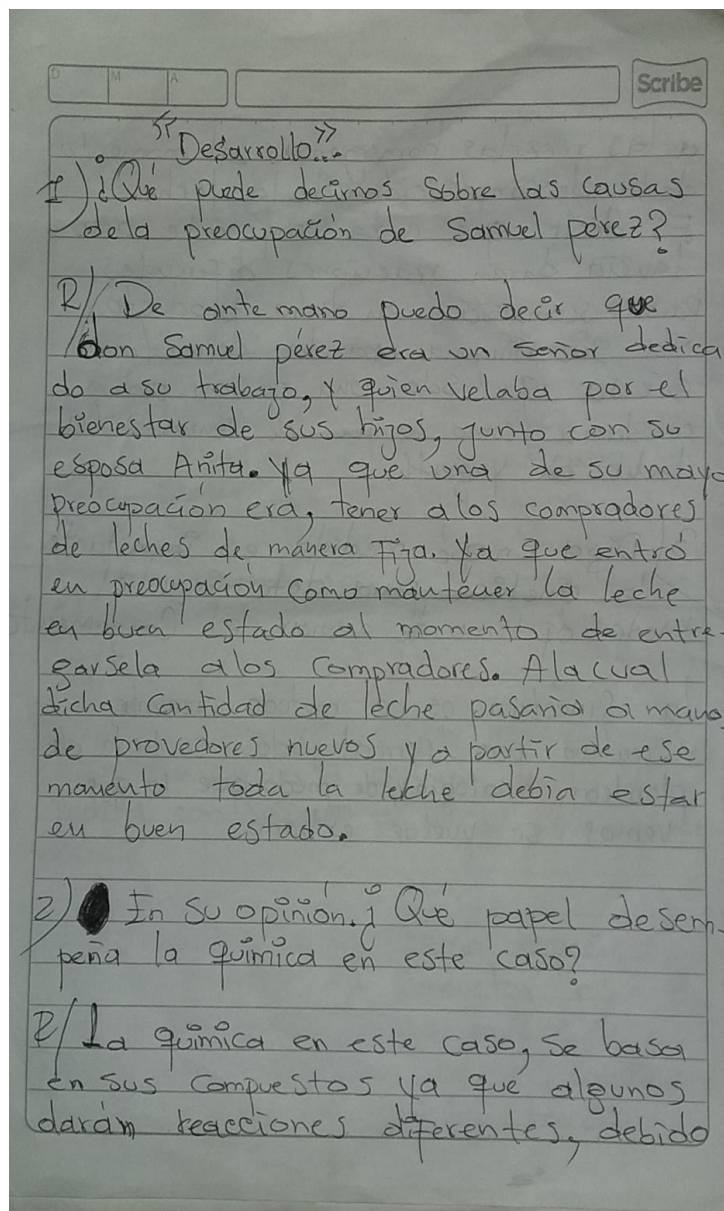 D M A Scribe
"Desarrollo"..
1) ¿Qué puede decirnos sobre las causas
dela preocupación de Samuel pérez?
R/ De ante mano puedo decir que
don Samuel pérez era un señor dedica
do a su trabajo, y quien velaba por el
bienestar de sus hijos, junto con su
esposa Anita. Ya que una de su mayo
preocupación era, tener alos compradores
de leches de manera Fija. Ya que entró
en preocupación como mantener la leche
en buen estado al momento de entre-
garsela alos compradores. Ala cual
dicha cantidad de leche pasaria a mano
de provedores nuevos y a partir de ese
momento toda la leche debia estar
en buen estado.
2) En su opinión. ¿ Qué papel desem-
peña la química en este caso?
R/ La química en este caso, se basa
en sus compuestos ya que algunos
darán reacciones diferentes, debido